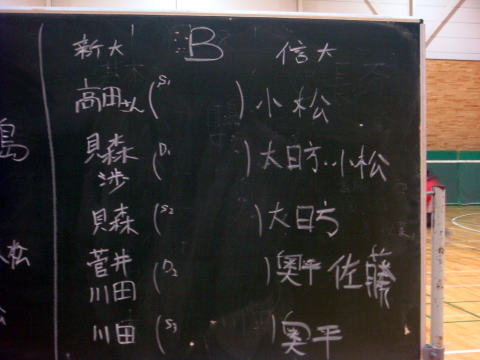 新大 B 信大
高田さん ( S1 ) 小松
貝森 渉 ( D1 ) 大日方・小松
貝森 ( S2 ) 大日方
菅井 川田 ( D2 ) 奥平 佐藤
川田 ( S3 ) 奥平
島
松